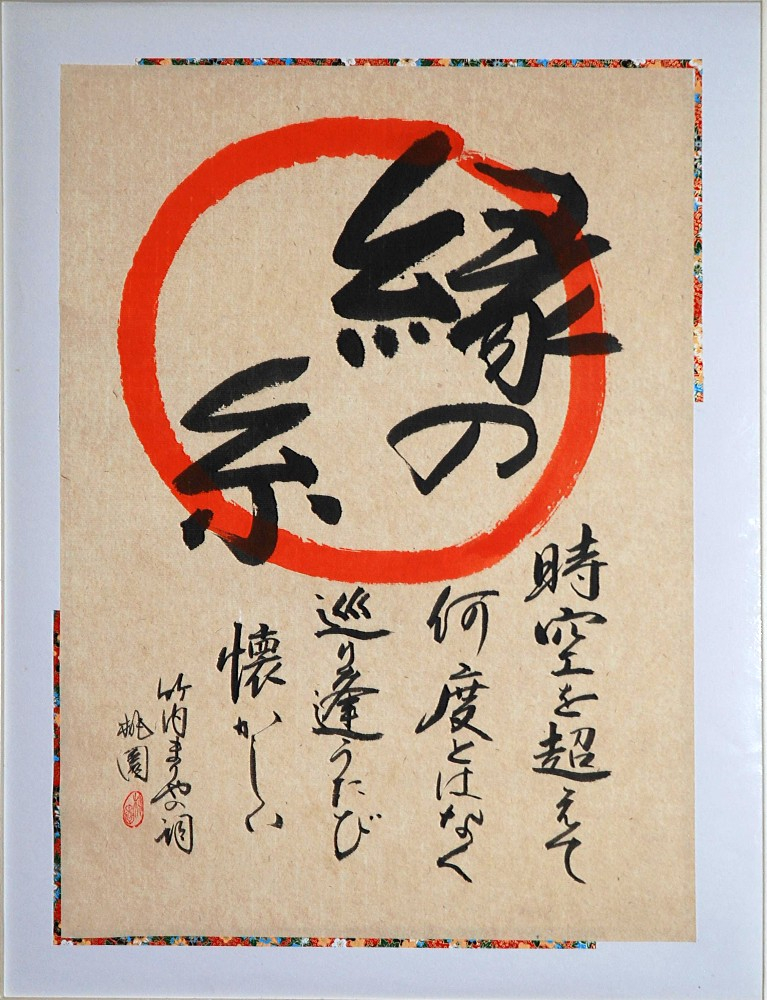 縁の
糸
時空を超えて
何度とはなく
巡り逢うたび
懐かしい
竹内まりや詞
桃園